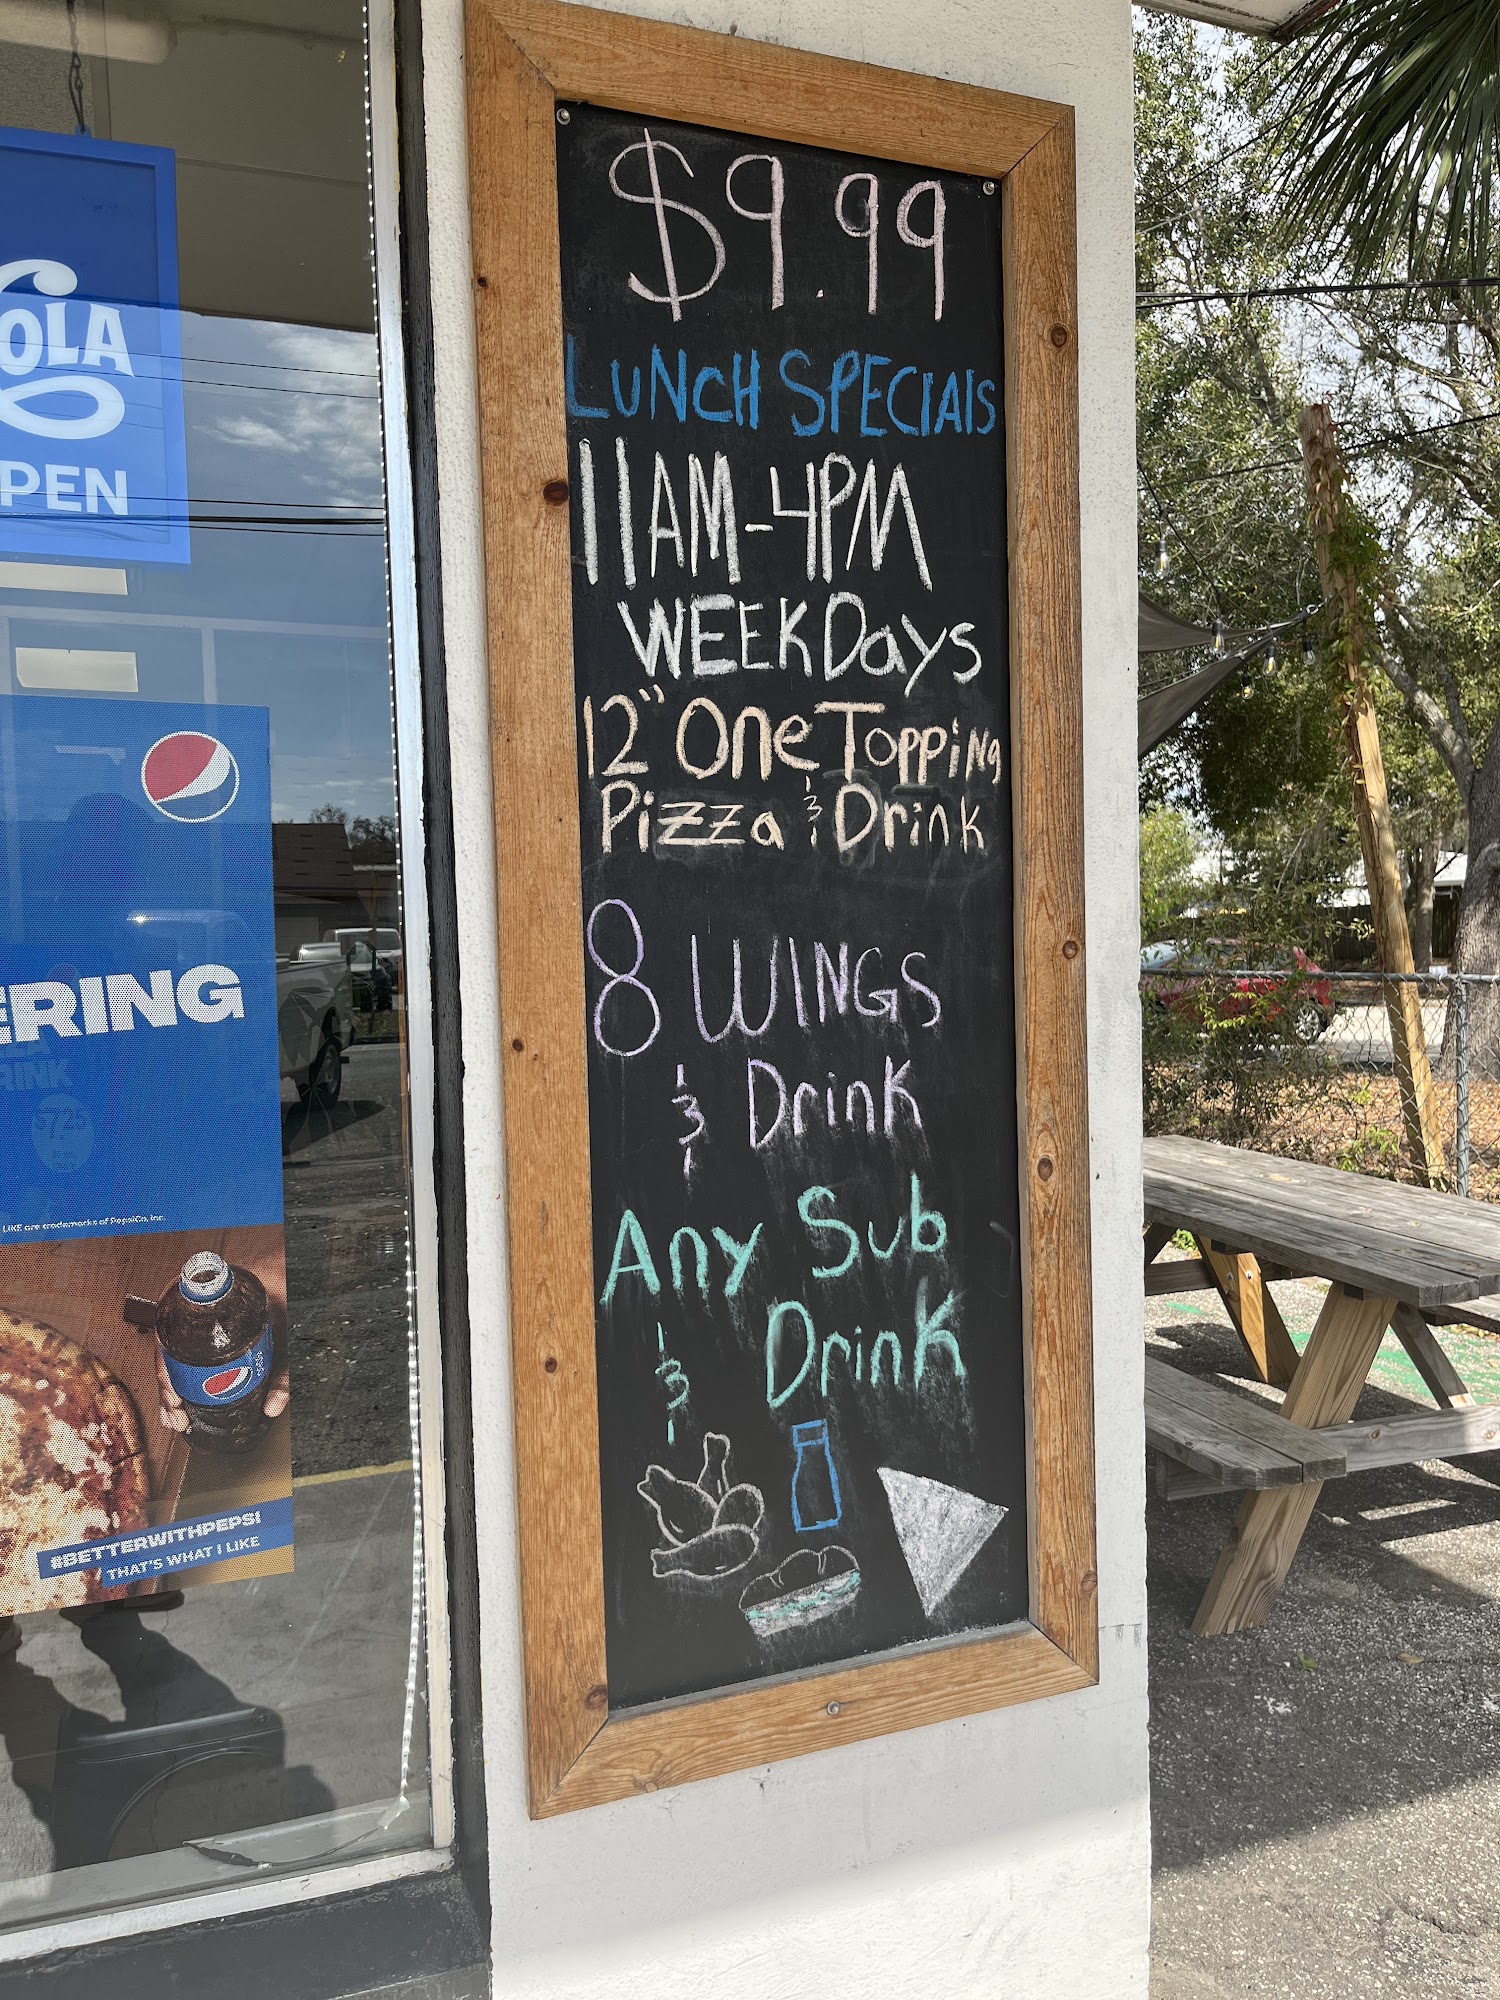 $9.99
LUNCH SPECIAlS
11AM-4PM
WEEKDays
12" One Topping
Pizza & Drink
8 WINGS
& Drink
Any Sub
& Drink
OLA
PEN
ERING
RINK
$7.25
LIKE are trademarks of PepsiCo, Inc.
#BETTERWITHPEPSI
THAT'S WHAT I LIKE